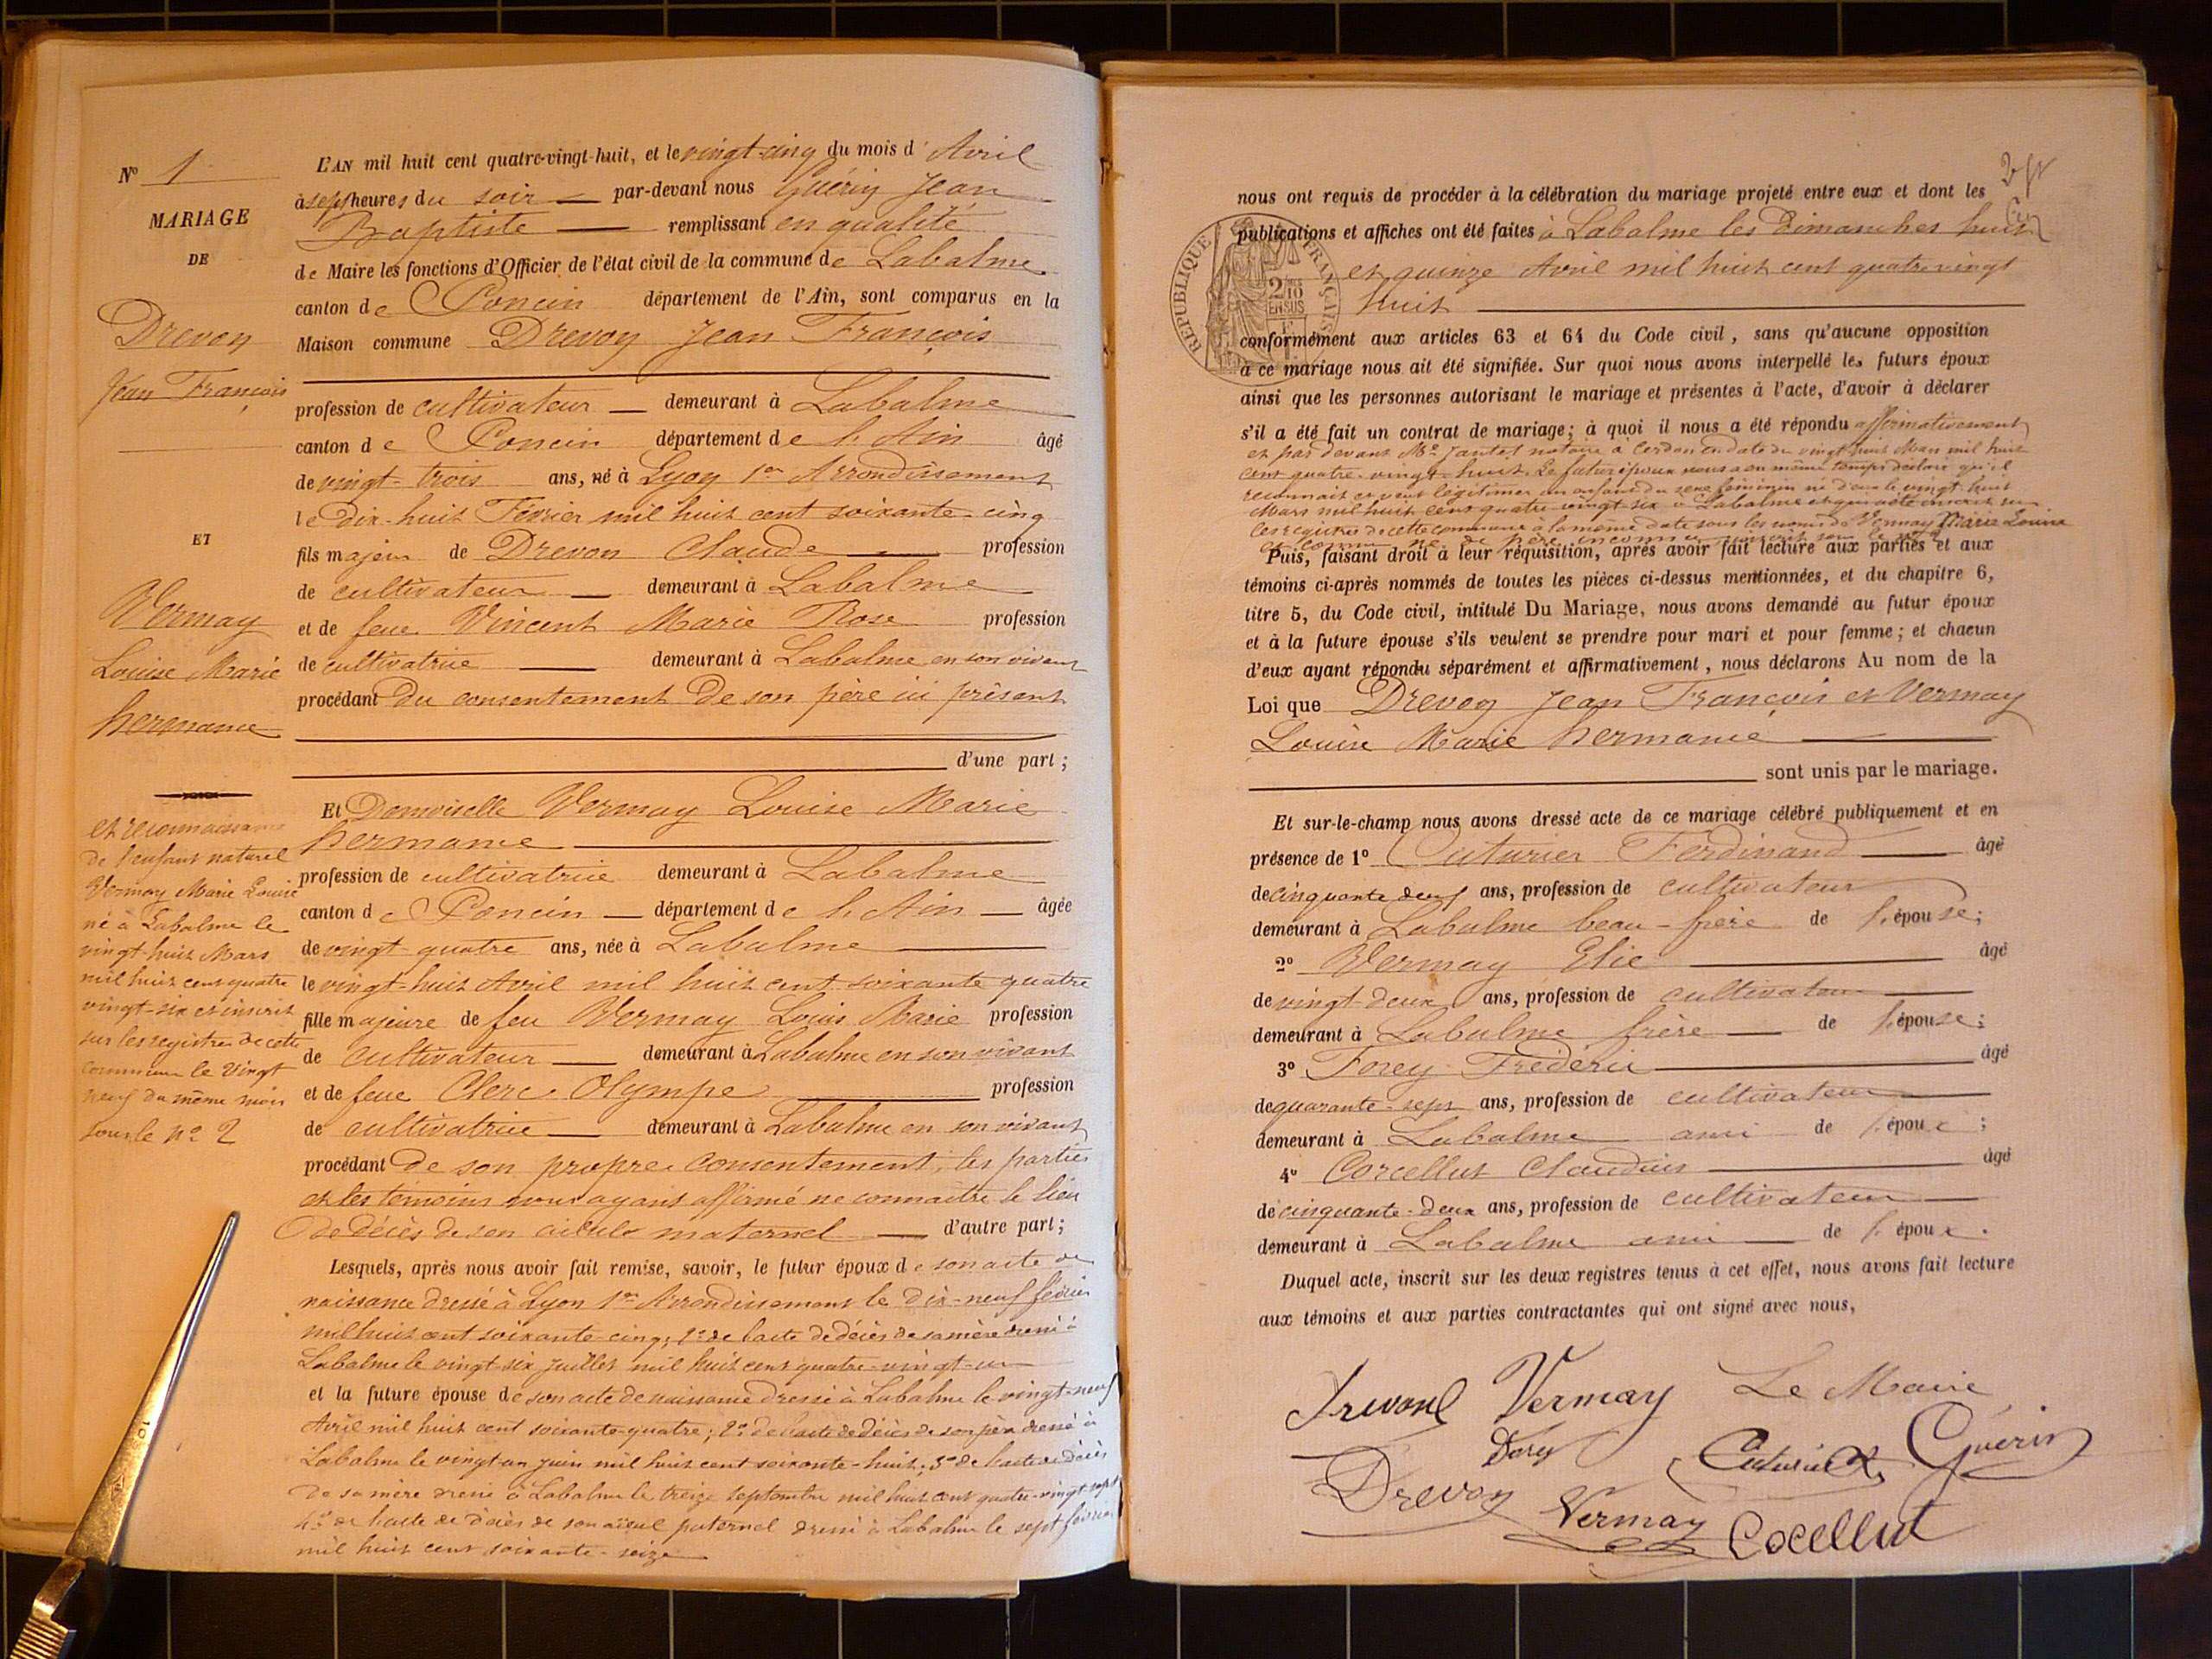 N° 1
MARIAGE
DE
Drevon
Jean François
ET
Vermay
Louise Marie
hermance
et reconnaissance
de l'enfant naturel
Vermay Marie Louise
né à Labalme le
vingt-huit Mars
mil huit cent quatre
vingt-six et inscrit
sur les registres de cette
commune le vingt
neuf du même mois
sous le n° 2
L'AN mil huit cent quatre-vingt-huit, et le vingt-cinq du mois d'Avril
à sept heures du soir — par-devant nous Guérin Jean
Baptiste — remplissant en qualité
de Maire les fonctions d'Officier de l'état civil de la commune de Labalme
canton de Poncin département de l'Ain, sont comparus en la
Maison commune Drevon Jean François
profession de cultivateur — demeurant à Labalme
canton de Poncin département de l'Ain âgé
de vingt-trois ans, né à Lyon 1er Arrondissement
le dix-huit Février mil huit cent soixante-cinq
fils majeur de Drevon Claude — profession
de cultivateur — demeurant à Labalme
et de feue Vincent Marie Rose profession
de cultivatrice — demeurant à Labalme en son vivant
procédant du consentement de son père ici présent
d'une part ;
Et Demoiselle Vermay Louise Marie
hermance
profession de cultivatrice demeurant à Labalme
canton de Poncin — département de l'Ain — âgée
de vingt-quatre ans, née à Labalme
le vingt-huit Avril mil huit cent soixante quatre
fille majeure de feu Vermay Louis Marie profession
de cultivateur — demeurant à Labalme en son vivant
et de feue Clerc Olympe — profession
de cultivatrice — demeurant à Labalme en son vivant
procédant de son propre consentement, les parties
et les témoins nous ayant affirmé ne connaître le lieu
de décès de son aïeule maternel — d'autre part ;
Lesquels, après nous avoir fait remise, savoir, le futur époux de son acte de
naissance dressé à Lyon 1er Arrondissement le dix-neuf février
mil huit cent soixante-cinq ; 2° de l'acte de décès de sa mère dressé à
Labalme le vingt-six juillet mil huit cent quatre-vingt-un
et la future épouse de son acte de naissance dressé à Labalme le vingt-neuf
Avril mil huit cent soixante-quatre ; 2° de l'acte de décès de son père dressé à
Labalme le vingt-un juin mil huit cent soixante-huit ; 3° de l'acte de décès
de sa mère dressé à Labalme le treize septembre mil huit cent quatre-vingt-sept
4° de l'acte de décès de son aïeul paternel dressé à Labalme le sept février
mil huit cent soixante-seize
RÉPUBLIQUE FRANÇAISE
2/10
EN SUS
nous ont requis de procéder à la célébration du mariage projeté entre eux et dont les
publications et affiches ont été faites à Labalme les Dimanches huit
et quinze Avril mil huit cent quatre vingt
huit
conformément aux articles 63 et 64 du Code civil, sans qu'aucune opposition
à ce mariage nous ait été signifiée. Sur quoi nous avons interpellé les futurs époux
ainsi que les personnes autorisant le mariage et présentes à l'acte, d'avoir à déclarer
s'il a été fait un contrat de mariage ; à quoi il nous a été répondu affirmativement
et par devant Me Jantet notaire à Cerdon en date du vingt-huit Mars mil huit
cent quatre-vingt-huit. Le futur époux nous a en même temps déclaré qu'il
reconnait et veut légitimer un enfant du sexe féminin né d'eux le vingt-huit
Mars mil huit cent quatre-vingt-six à Labalme et qui a été inscrit sur
les registres de cette commune à la même date sous les noms de Vermay Marie Louise
Puis, faisant droit à leur réquisition, après avoir fait lecture aux parties et aux
témoins ci-après nommés de toutes les pièces ci-dessus mentionnées, et du chapitre 6,
titre 5, du Code civil, intitulé Du Mariage, nous avons demandé au futur époux
et à la future épouse s'ils veulent se prendre pour mari et pour femme ; et chacun
d'eux ayant répondu séparément et affirmativement, nous déclarons Au nom de la
Loi que Drevon Jean François et Vermay
Louise Marie hermance
sont unis par le mariage.
Et sur-le-champ nous avons dressé acte de ce mariage célébré publiquement et en
présence de 1° Cuturier Ferdinand — âgé
de cinquante deux ans, profession de cultivateur
demeurant à Labalme beau-frère de l'épouse ;
2° Vermay Elie — âgé
de vingt-deux ans, profession de cultivateur
demeurant à Labalme frère — de l'épouse ;
3° Forey Frédéric — âgé
de quarante-sept ans, profession de cultivateur
demeurant à Labalme ami de l'époux ;
4° Corcellut Claudius — âgé
de cinquante-deux ans, profession de cultivateur
demeurant à Labalme ami — de l'époux.
Duquel acte, inscrit sur les deux registres tenus à cet effet, nous avons fait lecture
aux témoins et aux parties contractantes qui ont signé avec nous,
Vermay Le Maire
Forey Cuturier Guérin
Drevon Vermay Cocellut